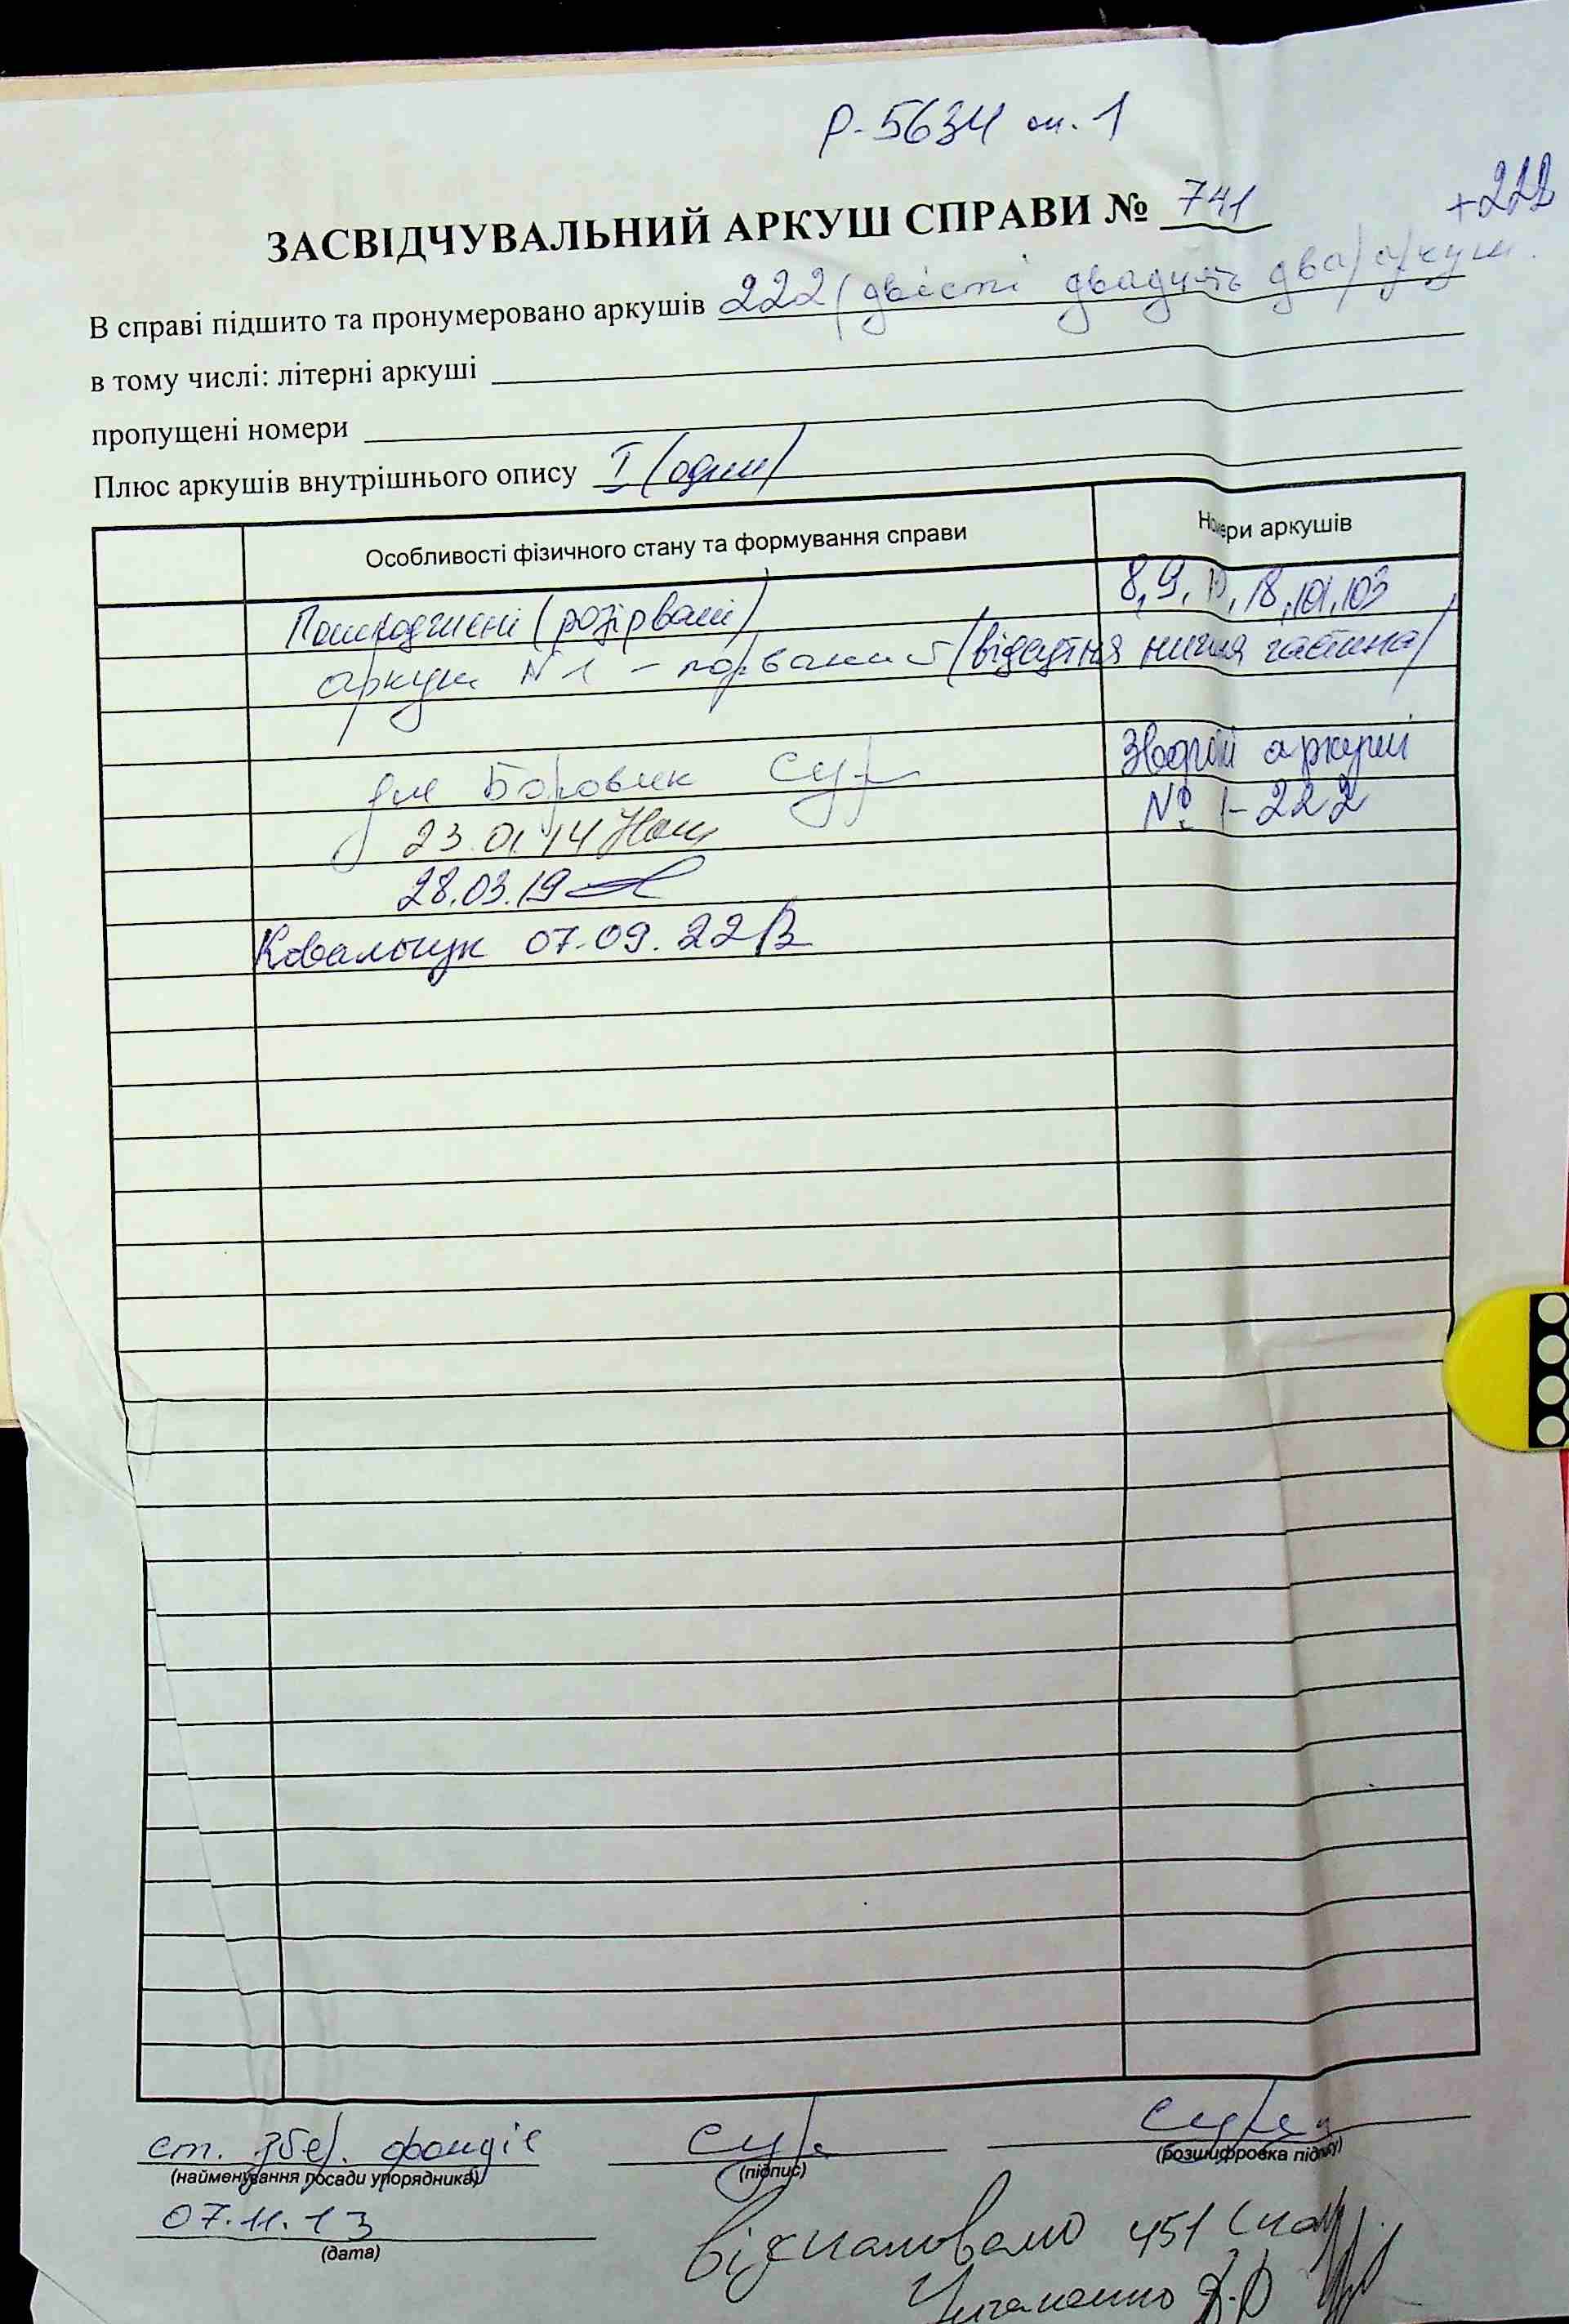 Р-5634 оп. 1
+222
ЗАСВІДЧУВАЛЬНИЙ АРКУШ СПРАВИ № 741
В справі підшито та пронумеровано аркушів 222 (двісті двадцять два) аркуш.
в тому числі: літерні аркуші
пропущені номери
Плюс аркушів внутрішнього опису I (один)
Особливості фізичного стану та формування справи Номери аркушів
Пошкоджені (розірвані) 8, 9, 10, 18, 101, 103
аркуш N 1 - порваний (відсутня нижня частина)
Боровик Зворот аркуші
23.01.14 № 1-222
28.03.19
Ковальчук 07.09.22
ст. збер. фондів
(найменування посади упорядника) (підпис) (розшифровка підпису)
07.11.13
(дата)
відскановано 451